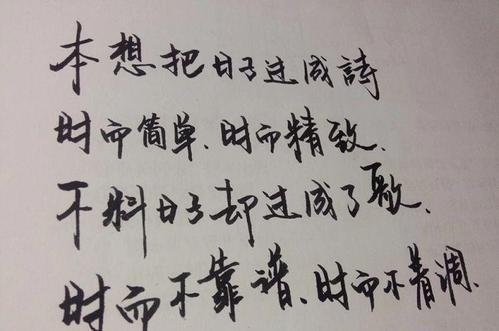 本想把日子过成詩
时而简单、时而精致、
不料日子却过成了歌、
时而不靠谱、时而不着调、